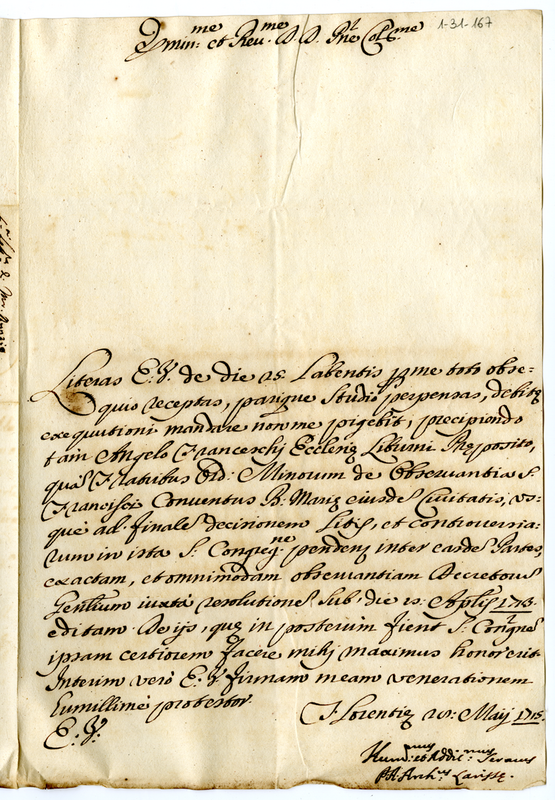 1-31-167
Emin:me et Reu:me D. D. Pne Col:me
Literas E. V. de die 25. Labentis p me toto obse=
quio receptas, parique Studio perpensas, debitę
exequutioni mandare non me pigebit, precipiendo
tam Angelo Franceschj Ecclesię Liburni Pręposito,
quā Fratribus Ord: Minorum de Obseruantia S.
Francisci Conuentus B. Marię eiusdē Ciuitatis, us=
que ad finalē decisionem Litis, et controuersia=
rum in ista S. Congreg:ne pendenţ inter easdē Partes,
exactam, et omnimodam obseruantiam Decretorū
Genľium iuxta resolutionē sub die 15: Aplis 1713.
editam. De ijs, quę in posterum fient S. Congnē
ipsam certiorem facere mihj maximus honor erit
Interim uerò E. V. firmam meam uenerationem
humillimè protestor
E. V.
Florentię 28: Maij 1715.
Hum:mus et Addic:mus Seruus
Archus Larissę.